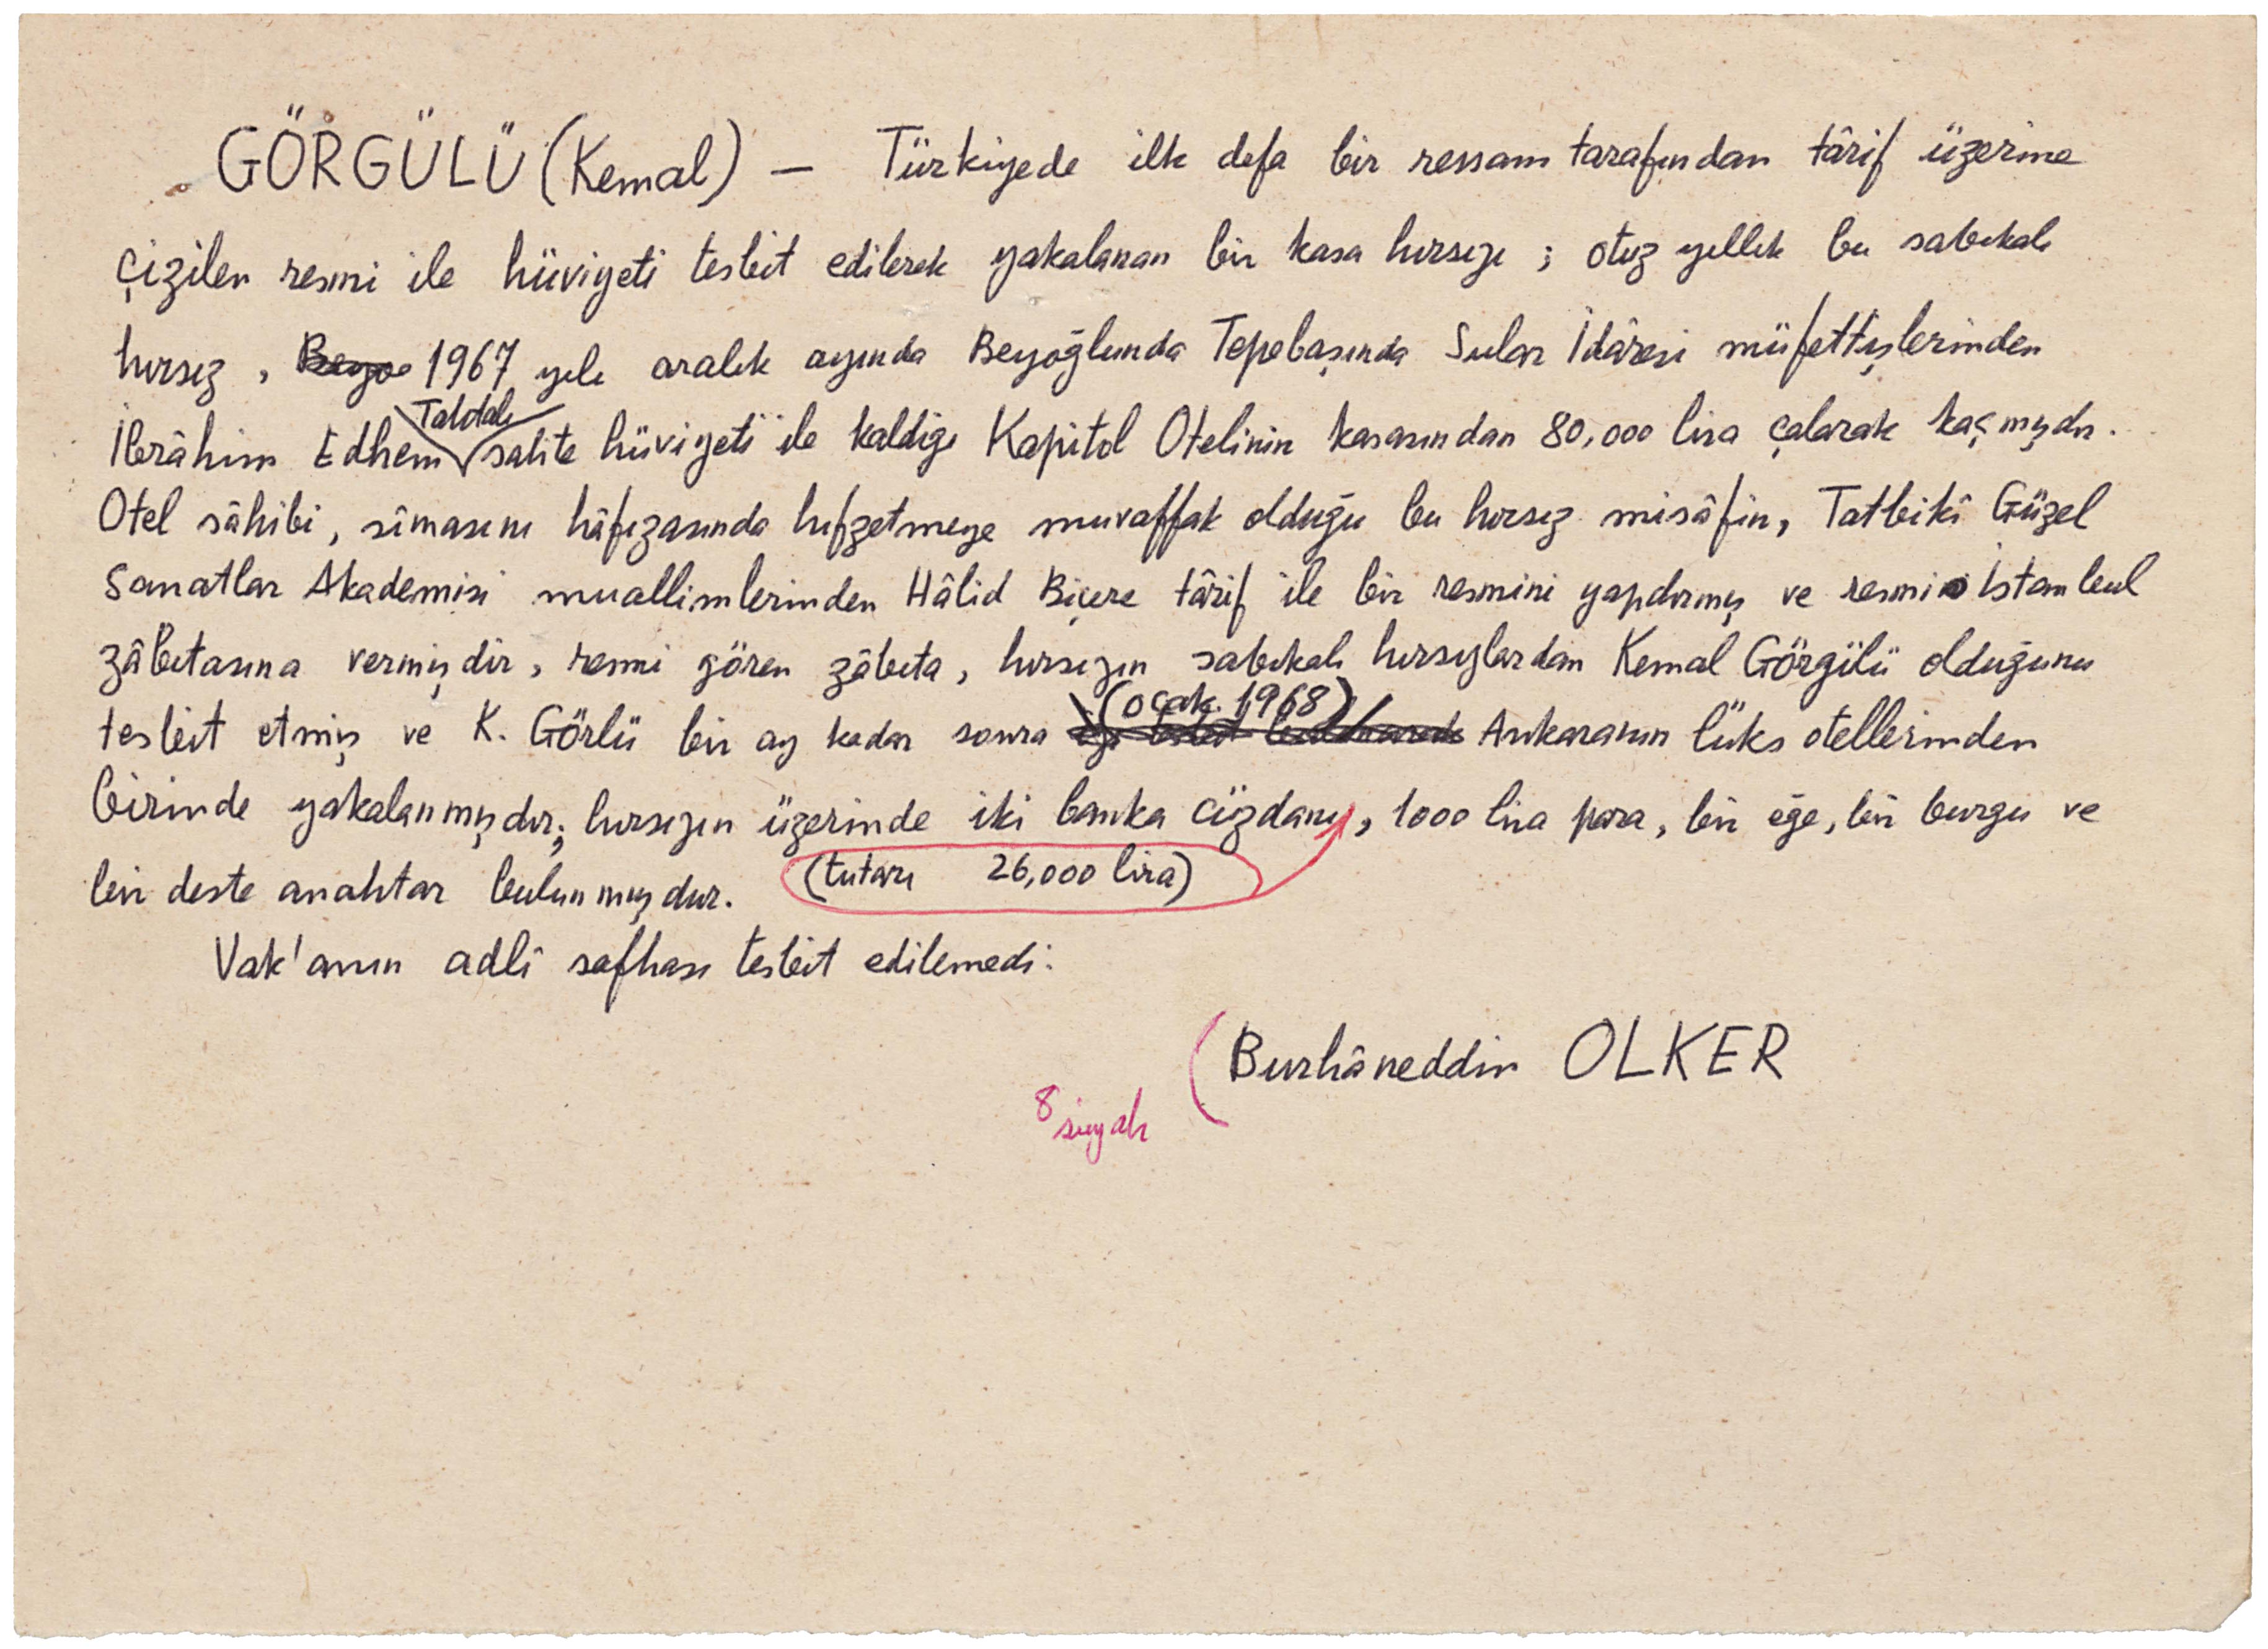 GÖRGÜLÜ (Kemal) — Türkiyede ilk defa bir ressam tarafından târif üzerine
çizilen resmi ile hüviyeti tesbit edilerek yakalanan bir kasa hırsızı ; otuz yıllık bu sabıkalı
hırsız , Beyo 1967 yılı aralık ayında Beyoğlunda Tepebaşında Sular İdâresi müfettişlerinden
Tahtalı
İbrâhim Edhem sahte hüviyeti ile kaldığı Kapitol Otelinin kasasından 80,000 lira çalarak kaçmışdır.
Otel sâhibi, sîmasını hâfızasında hıfzetmeye muvaffak olduğu bu hırsız misâfirin, Tatbikî Güzel
Sanatlar Akademisi muallimlerinden Hâlid Biçere târif ile bir resmini yapdırmış ve resmi İstanbul
zâbıtasına vermişdir, resmi gören zâbıta, hırsızın sabıkalı hırsızlardan Kemal Görgülü olduğunu
(ocak 1968)
tesbit etmiş ve K. Görlü bir ay kadar sonra Ankaranın lüks otellerinden
birinde yakalanmışdır; hırsızın üzerinde iki banka cüzdanı, 1000 lira para, bir eğe, bir burgu ve
bir deste anahtar bulunmuşdur. (tutarı 26,000 lira)
Vak'anın adlî safhası tesbit edilemedi.
(Burhâneddin OLKER
8 siyah